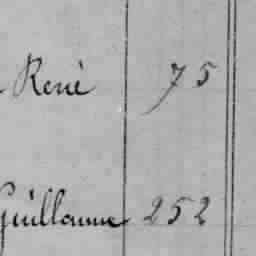 René 75
Guillaume 252